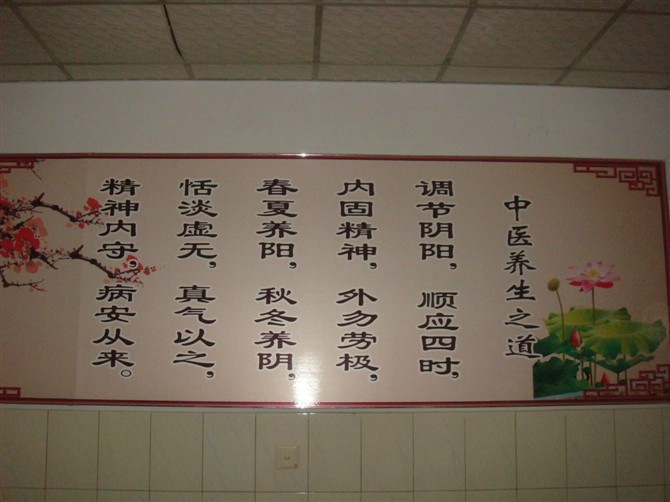 中医养生之道
调节阴阳，顺应四时，
内固精神，外勿劳极，
春夏养阳，秋冬养阴，
恬淡虚无，真气以之，
精神内守，病安从来。